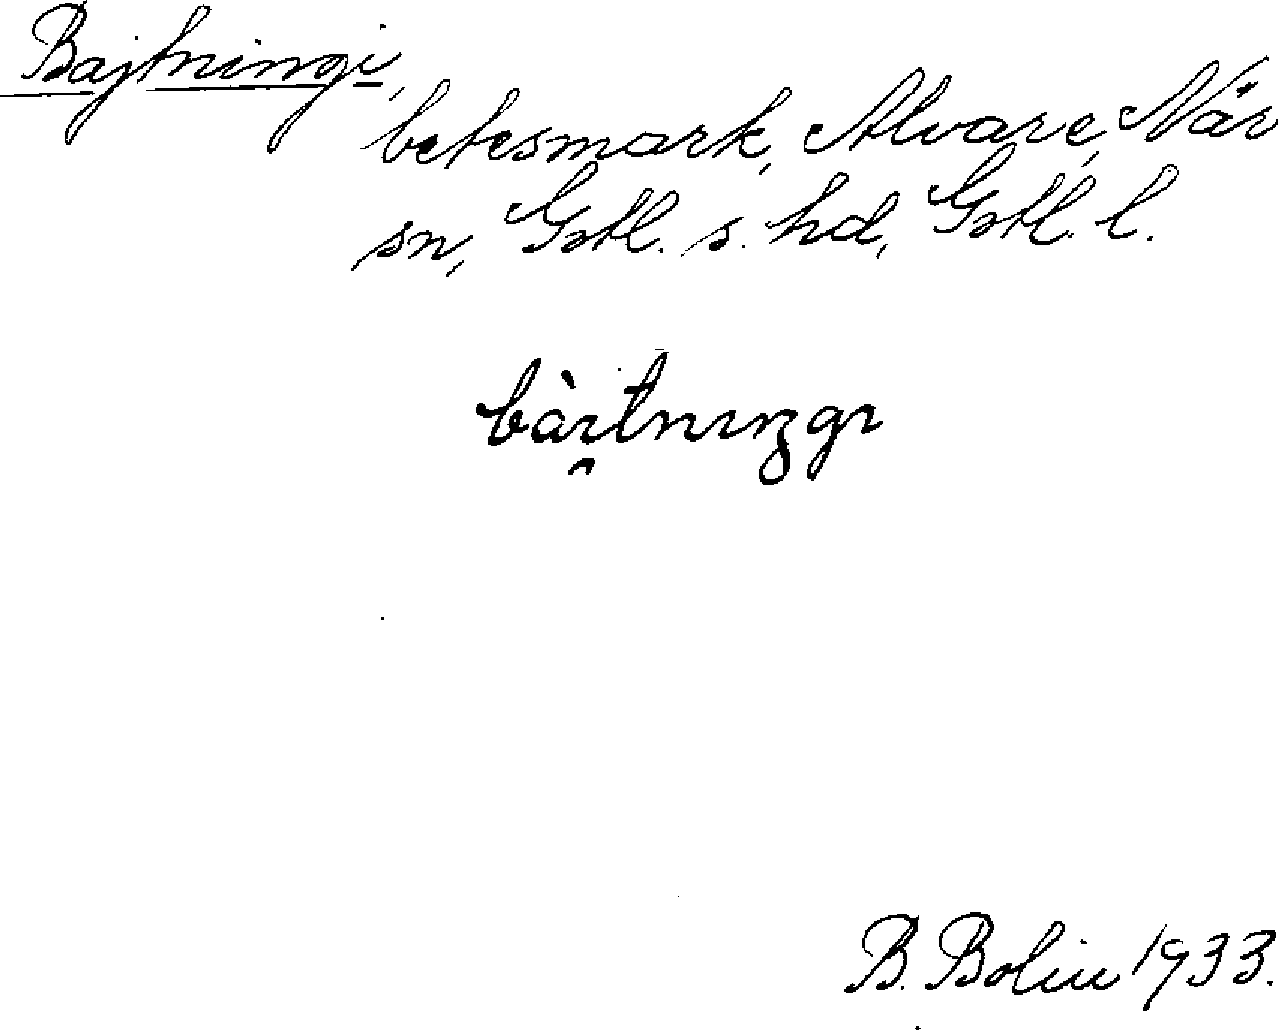 Bajtningi,
betesmark, Alvare, När
sn, Gotl. s. hd, Gotl. l.
bàı̯tnıŋgı
B. Bolin 1933.